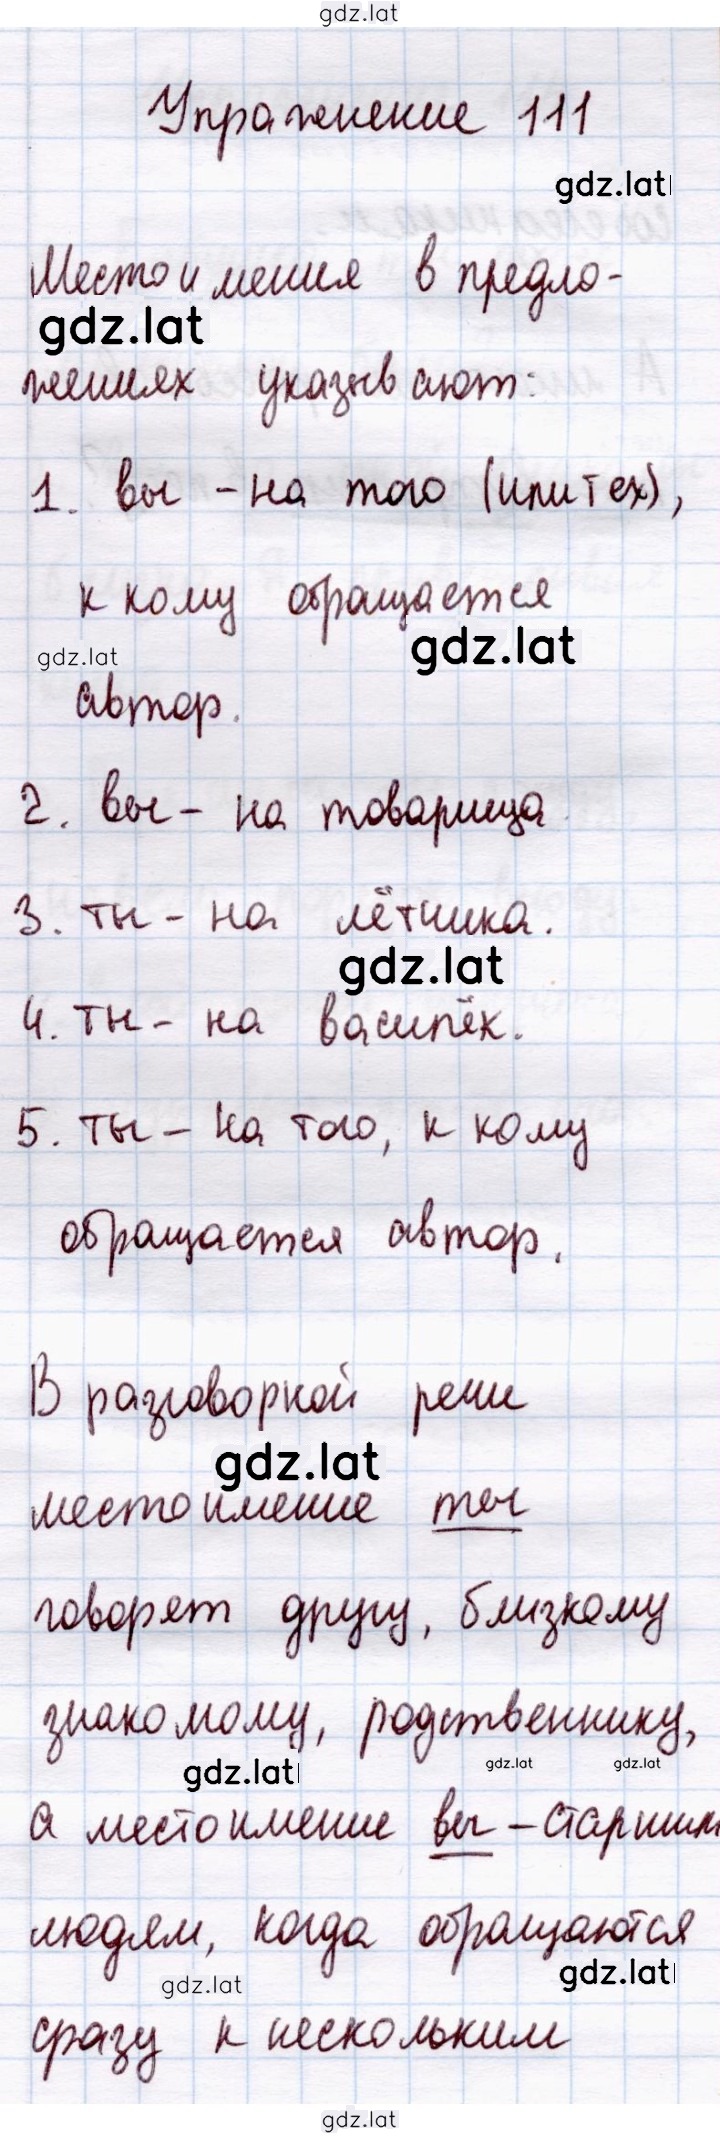 gdz.lat
Упражнение 111
gdz.lat
Местоимения в предло-
gdz.lat
жениях указывают:
1. вы - на того (или тех),
к кому обращается
gdz.lat
gdz.lat
автор.
2. вы - на товарища
3. ты - на лётчика.
gdz.lat
4. ты - на василёк.
5. ты - на того, к кому
обращается автор.
В разговорной речи
gdz.lat
местоимение ты
говорят другу, близкому
знакомому, родственнику,
gdz.lat
gdz.lat
gdz.lat
а местоимение вы - старшим
людям, когда обращаются
gdz.lat
gdz.lat
сразу к нескольким
gdz.lat